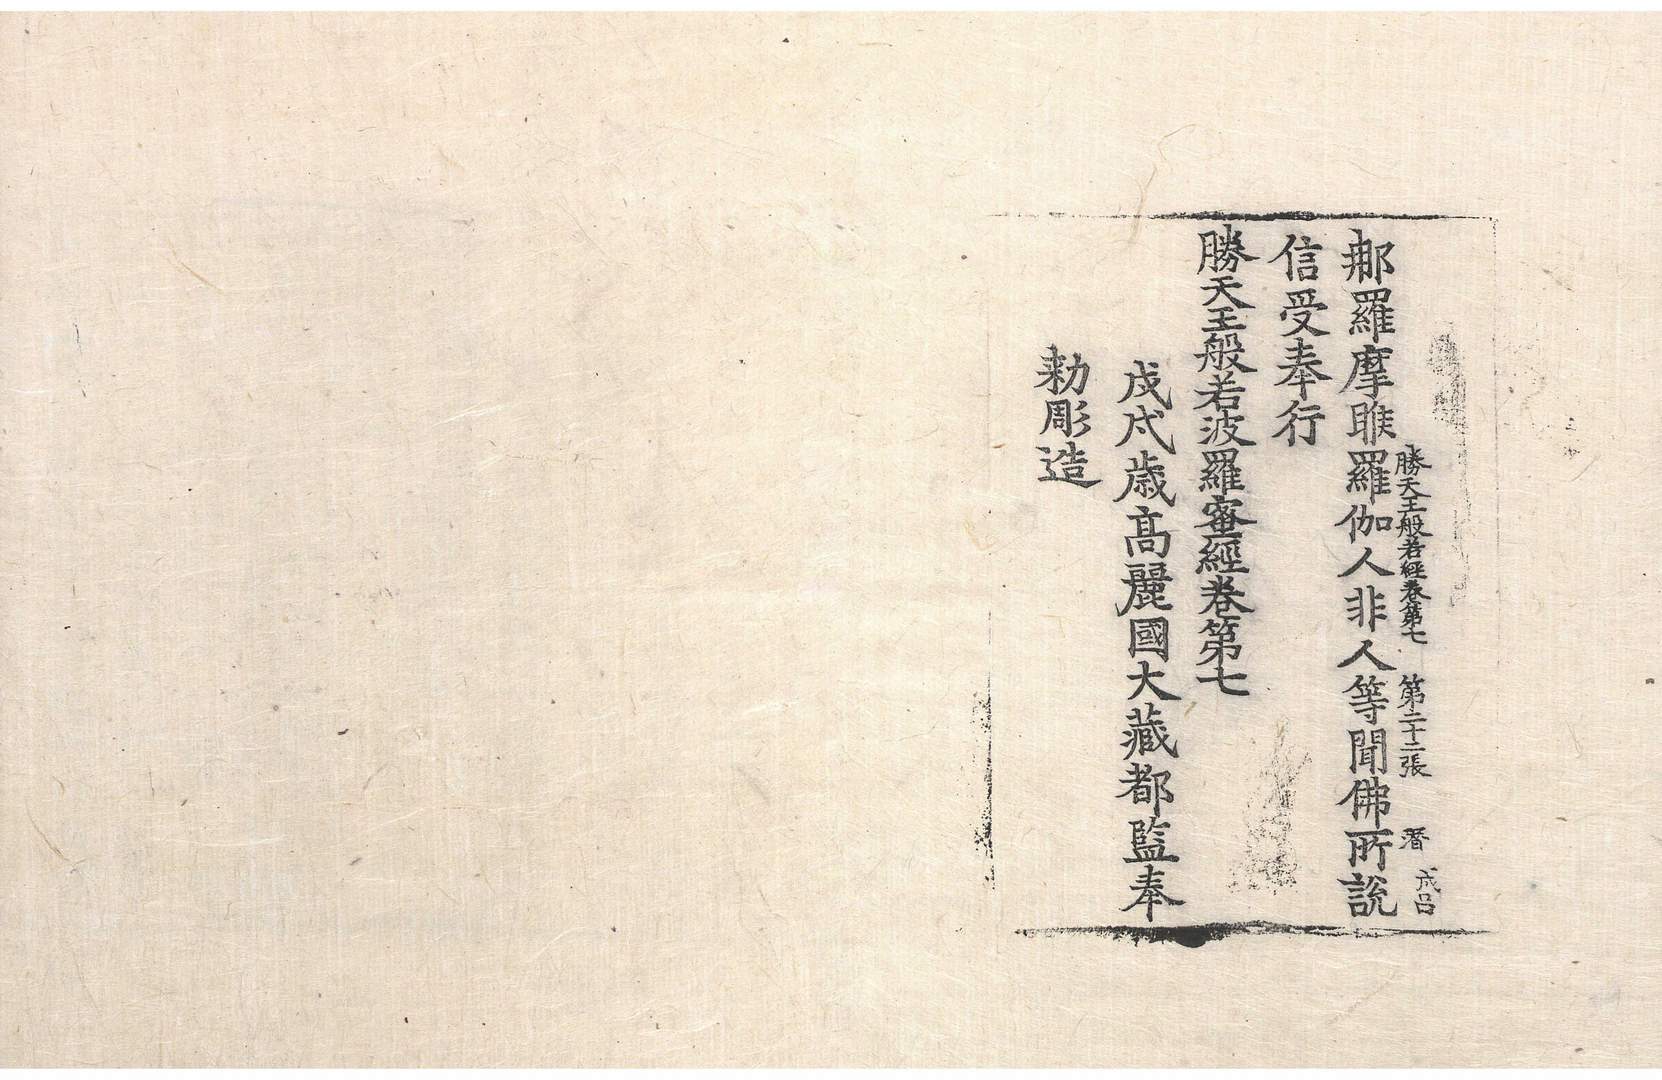 勝天王般若經卷第七 第二十二張 潛 戎呂
那羅摩睺羅伽人非人等聞佛所說
信受奉行
勝天王般若波羅蜜經卷第七
戊戌歲高麗國大藏都監奉
勅彫造